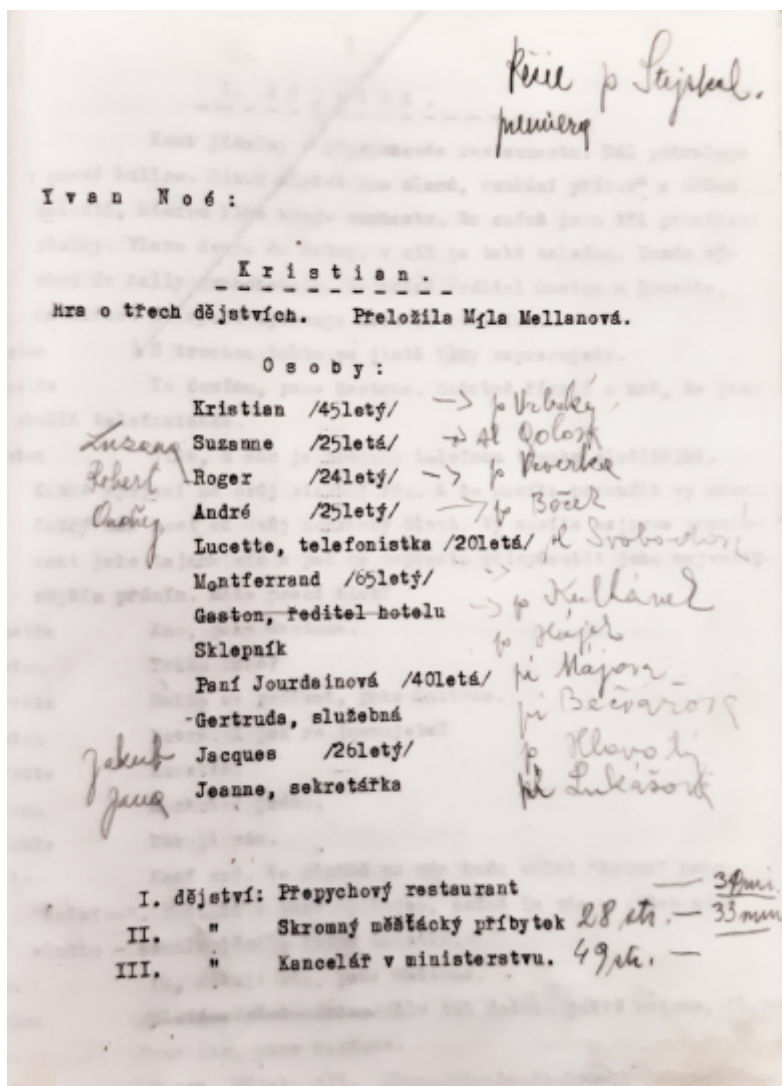 Režie p Stejskal.
premiera
Yvan Noé:
Kristian.
Hra o třech dějstvích. Přeložila Míla Mellanová.
Osoby:
Kristian /45letý/ -> p Vrbský
Zuzana Suzanne /25letá/ ->
Robert Roger /24letý/ -> p
Ondřej André /25letý/ -> p Boček
Lucette, telefonistka /20letá/ Svobodová
Montferrand /65letý/ ->
Gaston, ředitel hotelu -> p Kulhánek
Sklepník p Hájek
Paní Jourdainová /40letá/ pí Májová
-Gertruda, služebná pí Bečvářová
Jakub Jacques /26letý/ p Hlavatý
Jana Jeanne, sekretářka Lukášová
I. dějství: Přepychový restaurant —
II. " Skromný měšťácký příbytek 28 str. — 33 min
III. " Kancelář v ministerstvu. 49 str. —